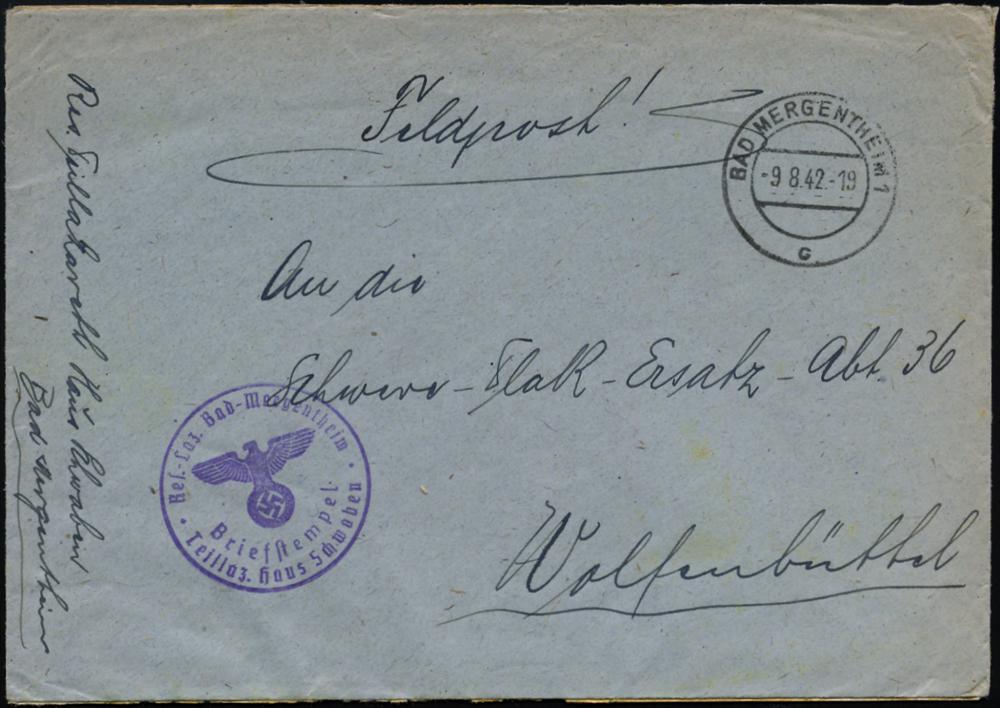 Feldpost!
BAD MERGENTHEIM 1
-9.8.42.-19
G
An die
Schwere-Flak-Ersatz-Abt. 36
Wolfenbüttel
Res.-Laz. Bad-Mergentheim
Briefstempel
Teillaz. Haus Schwaben
Res. Teillazarett Haus Schwaben
Bad Mergentheim